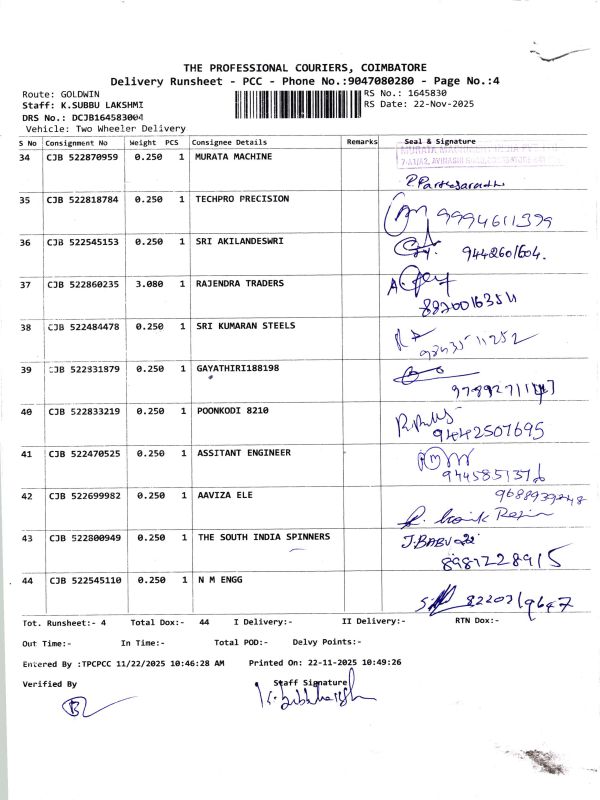 THE PROFESSIONAL COURIERS, COIMBATORE
Delivery Runsheet - PCC - Phone No.:9047080280 - Page No.:4
Route: GOLDWIN RS No.: 1645830
Staff: K.SUBBU LAKSHMI RS Date: 22-Nov-2025
DRS No.: DCJB164583004
Vehicle: Two Wheeler Delivery
S No Consignment No Weight PCS Consignee Details Remarks Seal & Signature
34 CJB 522870959 0.250 1 MURATA MACHINE
P. Parthasarathi
35 CJB 522818784 0.250 1 TECHPRO PRECISION 9994611399
36 CJB 522545153 0.250 1 SRI AKILANDESWRI 9442601604.
37 CJB 522860235 3.080 1 RAJENDRA TRADERS
8820016354
38 CJB 522484478 0.250 1 SRI KUMARAN STEELS
9843511252
39 CJB 522831879 0.250 1 GAYATHIRI188198
40 CJB 522833219 0.250 1 POONKODI 8210
9442507695
41 CJB 522470525 0.250 1 ASSITANT ENGINEER
9445851376
42 CJB 522699982 0.250 1 AAVIZA ELE 9688939248
43 CJB 522800949 0.250 1 THE SOUTH INDIA SPINNERS J.BABU
8981228915
44 CJB 522545110 0.250 1 N M ENGG
82203 19647
Tot. Runsheet:- 4 Total Dox:- 44 I Delivery:- II Delivery:- RTN Dox:-
Out Time:- In Time:- Total POD:- Delvy Points:-
Entered By :TPCPCC 11/22/2025 10:46:28 AM Printed On: 22-11-2025 10:49:26
Verified By Staff Signature